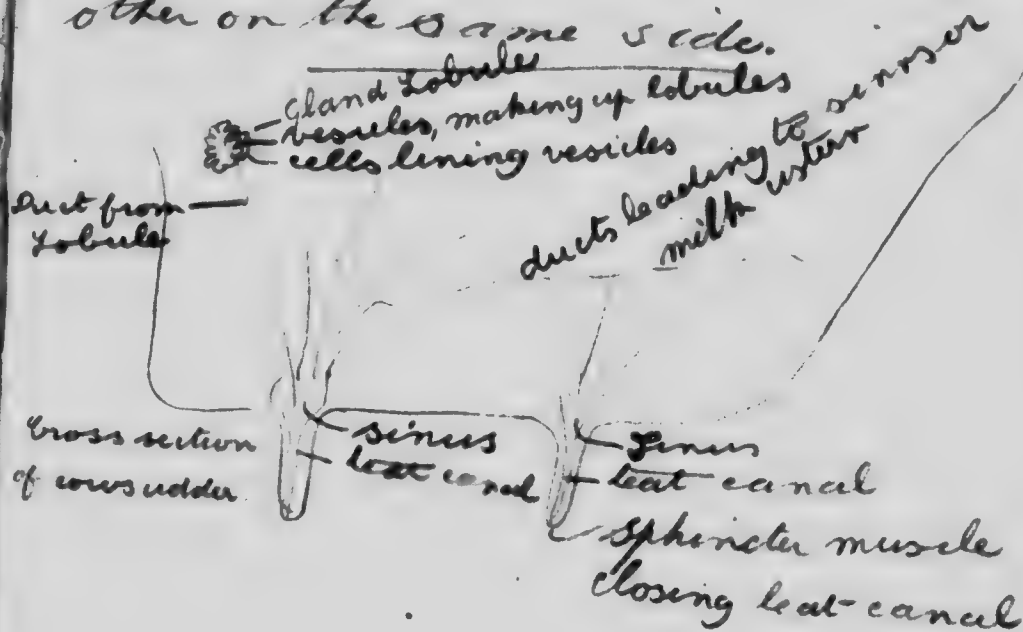 other on the same side.
Gland Lobules
vesicles, making up lobules
cells lining vesicles
ducts leading to sinus or
milk cistern
Duct from
Lobule
Cross section
of cows udder
sinus
teat canal
Sinus
teat canal
sphincter muscle
closing teat canal